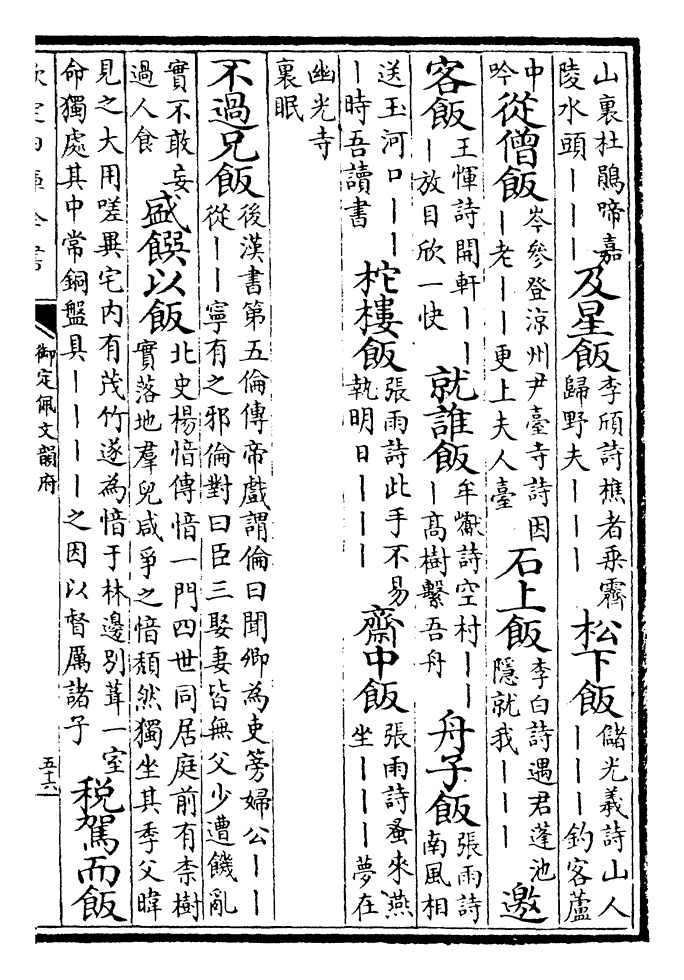 山裏杜鵑啼嘉
陵水頭｜｜｜
及星飯
李頎詩樵者乘霽
歸野夫｜｜｜
松下飯
儲光羲詩山人
｜｜｜釣客蘆
中
吟
從僧飯
岑參登涼州尹臺寺詩因
｜老｜｜更上夫人臺
石上飯
李白詩遇君蓬池
隱就我｜｜｜
邀
客飯
王惲詩開軒｜｜
｜放目欣一快
就誰飯
牟巘詩空村｜｜
｜高樹繫吾舟
舟子飯
張雨詩
南風相
送玉河口｜｜
｜時吾讀書
柁樓飯
張雨詩此手不易
執明日｜｜｜
齋中飯
張雨詩蚤來燕
坐｜｜｜夢在
幽光寺
裏眠
不過兄飯
後漢書第五倫傳帝戲謂倫曰聞卿為吏篣婦公｜｜
從｜｜寧有之邪倫對曰臣三娶妻皆無父少遭饑亂
實不敢妄
過人食
盛饌以飯
北史楊愔傳愔一門四世同居庭前有柰樹
實落地羣兒咸爭之愔頹然獨坐其季父暐
見之大用嗟異宅内有茂竹遂為愔于林邊别葺一室
命獨處其中常銅盤具｜｜｜｜之因以督厲諸子
税駕而飯
欽定四庫全書
御定佩文韻府
五十六